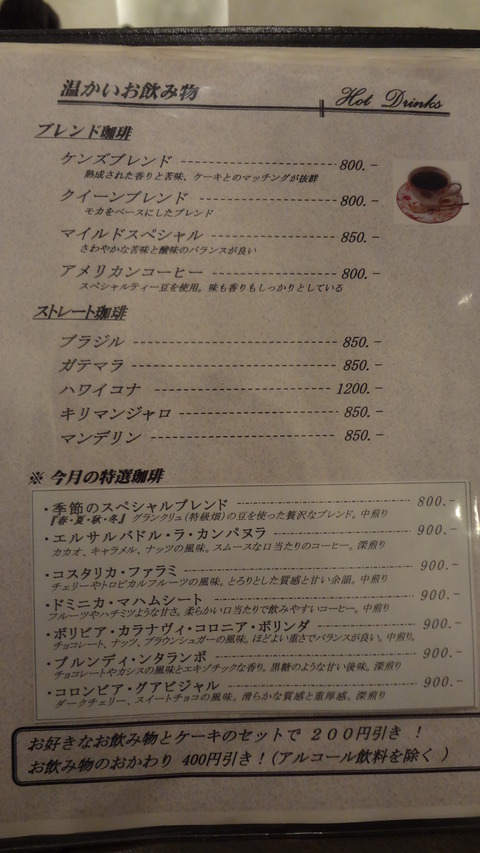 温かいお飲み物 Hot Drinks
ブレンド珈琲
ケンズブレンド 800.-
熟成された香りと苦味、ケーキとのマッチングが抜群
クイーンブレンド 800.-
モカをベースにしたブレンド
マイルドスペシャル 850.-
さわやかな苦味と酸味のバランスが良い
アメリカンコーヒー 800.-
スペシャルティー豆を使用。味も香りもしっかりとしている
ストレート珈琲
ブラジル 850.-
ガテマラ 850.-
ハワイコナ 1200.-
キリマンジャロ 850.-
マンデリン 850.-
※ 今月の特選珈琲
・季節のスペシャルブレンド 800.-
『春・夏・秋・冬』 グランクリュ(特級畑)の豆を使った贅沢なブレンド。中煎り
・エルサルバドル・ラ・カンパヌラ 900.-
カカオ、キャラメル、ナッツの風味。スムースな口当たりのコーヒー。深煎り
・コスタリカ・ファラミ 900.-
チェリーやトロピカルフルーツの風味。とろりとした質感と甘い余韻。中煎り
・ドミニカ・マハムシート 900.-
フルーツやハチミツような甘さ。柔らかい口当たりで飲みやすいコーヒー。中煎り
・ボリビア・カラナヴィ・コロニア・ボリンダ 900.-
チョコレート、ナッツ、ブラウンシュガーの風味。ほどよい重さでバランスが良い。中煎り。
・ブルンディ・ンタランボ 900.-
チョコレートやカシスの風味とエキゾチックな香り。黒糖のような甘い後味。深煎り
・コロンビア・グアビジャル 900.-
ダークチェリー、スイートチョコの風味。滑らかな質感と重厚感。深煎り
お好きなお飲み物とケーキのセットで 200円引き !
お飲み物のおかわり 400円引き!(アルコール飲料を除く )